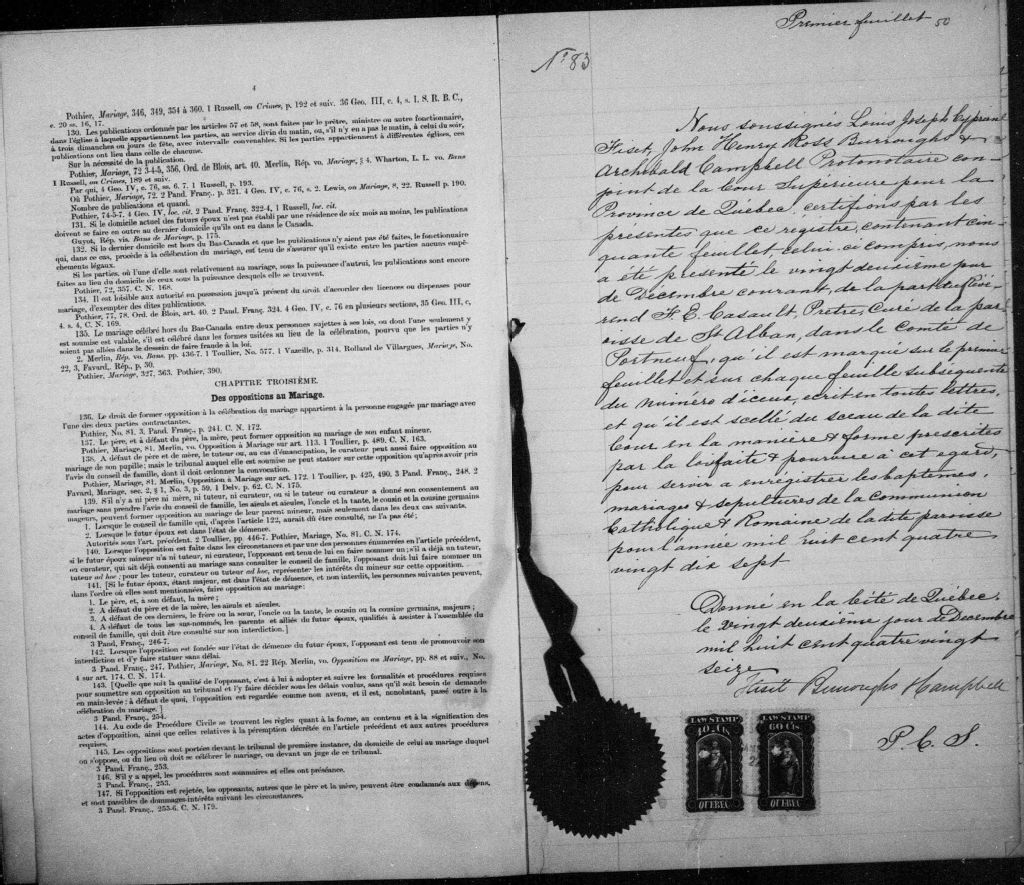 4
Pothier, Mariage, 346, 349, 354 à 360. 1 Russell, on Crimes, p. 192 et suiv. 36 Geo. III, c. 4, s. 1. S. R. B. C.,
c. 20 ss. 16, 17.
130. Les publications ordonnées par les articles 57 et 58, sont faites par le prêtre, ministre ou autre fonctionnaire,
dans l'église à laquelle appartiennent les parties, au service divin du matin, ou, s'il n'y en a pas le matin, à celui du soir,
à trois dimanches ou jours de fête, avec intervalle convenables. Si les parties appartiennent à différentes églises, ces
publications ont lieu dans celle de chacune.
Sur la nécessité de la publication.
Pothier, Mariage, 72 3-4-5, 356, Ord. de Blois, art. 40. Merlin, Rép. vo. Mariage, § 4. Wharton, L. L. vo. Bans
1 Russell, on Crimes, 189 et suiv.
Par qui, 4 Geo. IV, c. 76, ss. 6, 7. 1 Russell, p. 193.
Où Pothier, Mariage, 72. 2 Pand. Franç. p. 321. 4 Geo. IV, c. 76, s. 2. Lewis, on Mariage, 8, 22. Russell p. 190.
Nombre de publications et quand.
Pothier, 74-5-7. 4 Geo. IV, loc. cit. 2 Pand. Franç. 322-4, 1 Russell, loc. cit.
131. Si le domicile actuel des futurs époux n'est pas établi par une résidence de six mois au moins, les publications
doivent se faire en outre au dernier domicile qu'ils ont eu dans le Canada.
Guyot, Rép. vis Bans de Mariage, p. 175.
132. Si le dernier domicile est hors du Bas-Canada et que les publications n'y aient pas été faites, le fonctionnaire
qui, dans ce cas, procède à la célébration du mariage, est tenu de s'assurer qu'il existe entre les parties aucuns empê-
chements légaux.
Si les parties, où l'une d'elles sont relativement au mariage, sous la puissance d'autrui, les publications sont encore
faites au lieu du domicile de ceux sous la puissance desquels elle se trouvent.
Pothier, 72, 357. C. N. 168.
134. Il est loisible aux autorité en possession jusqu'à présent du droit d'accorder des licences ou dispenses pour
mariage, d'exempter des dites publications.
Pothier, 77, 78. Ord. de Blois, art. 40. 2 Pand. Franç. 324. 4 Geo. IV, c. 76 en plusieurs sections, 35 Geo. III, c,
4. s. 4, C. N. 169.
135. Le mariage célébré hors du Bas-Canada entre deux personnes sujettes à ses lois, ou dont l'une seulement y
est soumise est valable, s'il est célébré dans les formes usitées au lieu de la célébration, pourvu que les parties n'y
soient pas allées dans le dessein de faire fraude à la loi.
2, Merlin, Rép. vo. Bans, pp. 436-7. 1 Toullier, No. 577. 1 Vazeille, p. 314. Rolland de Villargues, Mariage, No.
22, 3, Favard, Rép., p. 30.
Pothier, Mariage, 327, 363. Pothier, 390.
CHAPITRE TROISIÈME.
Des oppositions au Mariage.
136. Le droit de former opposition à la célébration du mariage appartient à la personne engagée par mariage avec
l'une des deux parties contractantes.
Pothier, No. 81. 3 Pand. Franç., p. 241. C. N. 172.
137. Le père, et à défaut du père, la mère, peut former opposition au mariage de son enfant mineur.
Pothier, Mariage, 81. Merlin, vo. Opposition à Mariage sur art. 113. 1 Toullier, p. 489. C. N. 163.
138. A défaut de père et de mère, le tuteur, ou, au cas d'émancipation, le curateur peut aussi faire opposition au
mariage de son pupille; mais le tribunal auquel elle est soumise ne peut statuer sur cette opposition qu'après avoir pris
l'avis du conseil de famille, dont il doit ordonner la convocation.
Pothier, Mariage, 81. Merlin, Opposition à Mariage sur art. 172. 1 Toullier, p. 425, 490, 3 Pand. Franç., 248. 2
Favard, Mariage, sec. 2, § 1, No. 3, p. 59. 1 Delv. p. 62. C. N. 175.
139. S'il n'y a ni père ni mère, ni tuteur, ni curateur, ou si le tuteur ou curateur a donné son consentement au
mariage sans prendre l'avis du conseil de famille, les aïeuls et aïeules, l'oncle et la tante, le cousin et la cousine germains
majeurs, peuvent former opposition au mariage de leur parent mineur, mais seulement dans les deux cas suivants.
1. Lorsque le conseil de famille qui, d'après l'article 122, aurait dû être consulté, ne l'a pas été;
2. Lorsque le futur époux est dans l'état de démence.
Autorités sous l'art. précédent. 2 Toullier, pp. 446-7. Pothier, Mariage, No. 81. C. N. 174.
140. Lorsque l'opposition est faite dans les circonstances et par une des personnes énumérées en l'article précédent,
si le futur époux mineur n'a ni tuteur, ni curateur, l'opposant est tenu de lui en faire nommer un; s'il a déjà un tuteur,
ou curateur, qui ait déjà consenti au mariage sans consulter le conseil de famille, l'opposant doit lui faire nommer un
tuteur ad hoc; pour les tuteur, curateur ou tuteur ad hoc, représenter les intérêts du mineur sur cette opposition.
141. [Si le futur époux, étant majeur, est dans l'état de démence, et non interdit, les personnes suivantes peuvent,
dans l'ordre où elles sont mentionnées, faire opposition au mariage:
1. Le père, et, à son défaut, la mère;
2. A défaut du père et de la mère, les aïeuls et aïeules.
3. A défaut de ces derniers, le frère ou la sœur, l'oncle ou la tante, le cousin ou la cousine germains, majeurs;
4. A défaut de tous les sus-nommés, les parents et alliés du futur époux, qualifiés à assister à l'assemblée du
conseil de famille, qui doit être consulté sur son interdiction.]
3 Pand. Franç., 246-7.
142. Lorsque l'opposition est fondée sur l'état de démence du futur époux, l'opposant est tenu de promouvoir son
interdiction et d'y faire statuer sans délai.
3 Pand. Franç., 247. Pothier, Mariage, No. 81. 22 Rép. Merlin, vo. Opposition au Mariage, pp. 88 et suiv., No.
4 sur art. 174. C. N. 174.
143. [Quelle que soit la qualité de l'opposant, c'est à lui à adopter et suivre les formalités et procédures requises
pour soumettre son opposition au tribunal et l'y faire décider sous les délais voulus, sans qu'il soit besoin de demande
en main-levée; à défaut de quoi, l'opposition est regardée comme non avenue, et il est, nonobstant, passé outre à la
célébration du mariage.]
3 Pand. Franç., 254.
144. Au code de Procédure Civile se trouvent les règles quant à la forme, au contenu et à la signification des
actes d'opposition, ainsi que celles relatives à la péremption décrétée en l'article précédent et aux autres procédures
requises.
145. Les oppositions sont portées devant le tribunal de première instance, du domicile de celui au mariage duquel
on s'oppose, ou du lieu où doit se célébrer le mariage, ou devant un juge de ce tribunal.
3 Pand. Franç., 253.
146. S'il y a appel, les procédures sont sommaires et elles ont préséance.
3 Pand. Franç., 253.
147. Si l'opposition est rejetée, les opposants, autres que le père et la mère, peuvent être condamnés aux dépens,
et sont passibles de dommages-intérêts suivant les circonstances.
3 Pand. Franç., 255-6. C. N. 179.
Premier feuillet 50
No 83
Nous soussignés Louis Joseph Cyprien
Fiset, John Henry Ross Burroughs &
Archibald Campbell Protonotaire con-
joint de la Cour Supérieure pour la
Province de Québec, certifions par les
présentes que ce régistre, contenant cin-
quante feuillet, celui-ci compris, nous
a été présenté le vingt deuxième jour
de Décembre courant, de la part de Révé-
rend F. E. Casault, Prêtre, Curé de la par-
oisse de St Alban, dans le Comté de
Portneuf, qu'il est marqué sur le premier
feuillet et sur chaque feuille subséquente
du numéro d'iceux, ecrit en toutes lettres,
et qu'il est scellé du sceau de la dite
Cour en la manière & forme prescrites
par la loi faite & pourvue à cet egard,
pour servir a enrégistrer les baptêmes,
mariages & sepultures de la Communion
Catholique & Romaine de la dite paroisse
pour l'année mil huit cent quatre
vingt dix sept
Donné en la Cité de Québec,
le vingt deuxième jour de Décembre
mil huit cent quatre vingt
seize
Fiset Burroughs Campbell
P. C. S.
LAW STAMP
40 CTS
QUEBEC
LAW STAMP
60 CTS
QUEBEC